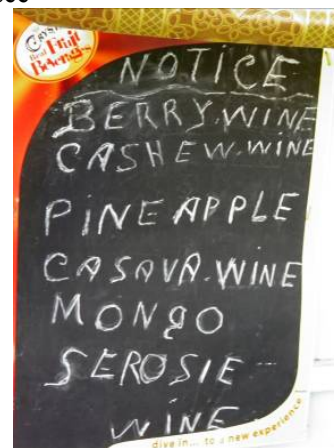 Real Fruit
Beverages
NOTICE
BERRY.WINE
CASHEW.WINE
PINEAPPLE
CASAVA.WINE
MONGO
SEROSIE
WINE
dive in... to a new experience